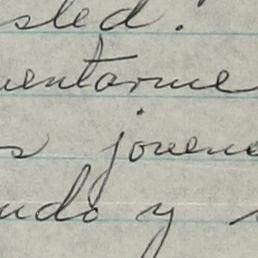 sted.
entarme
s jovene
udo y